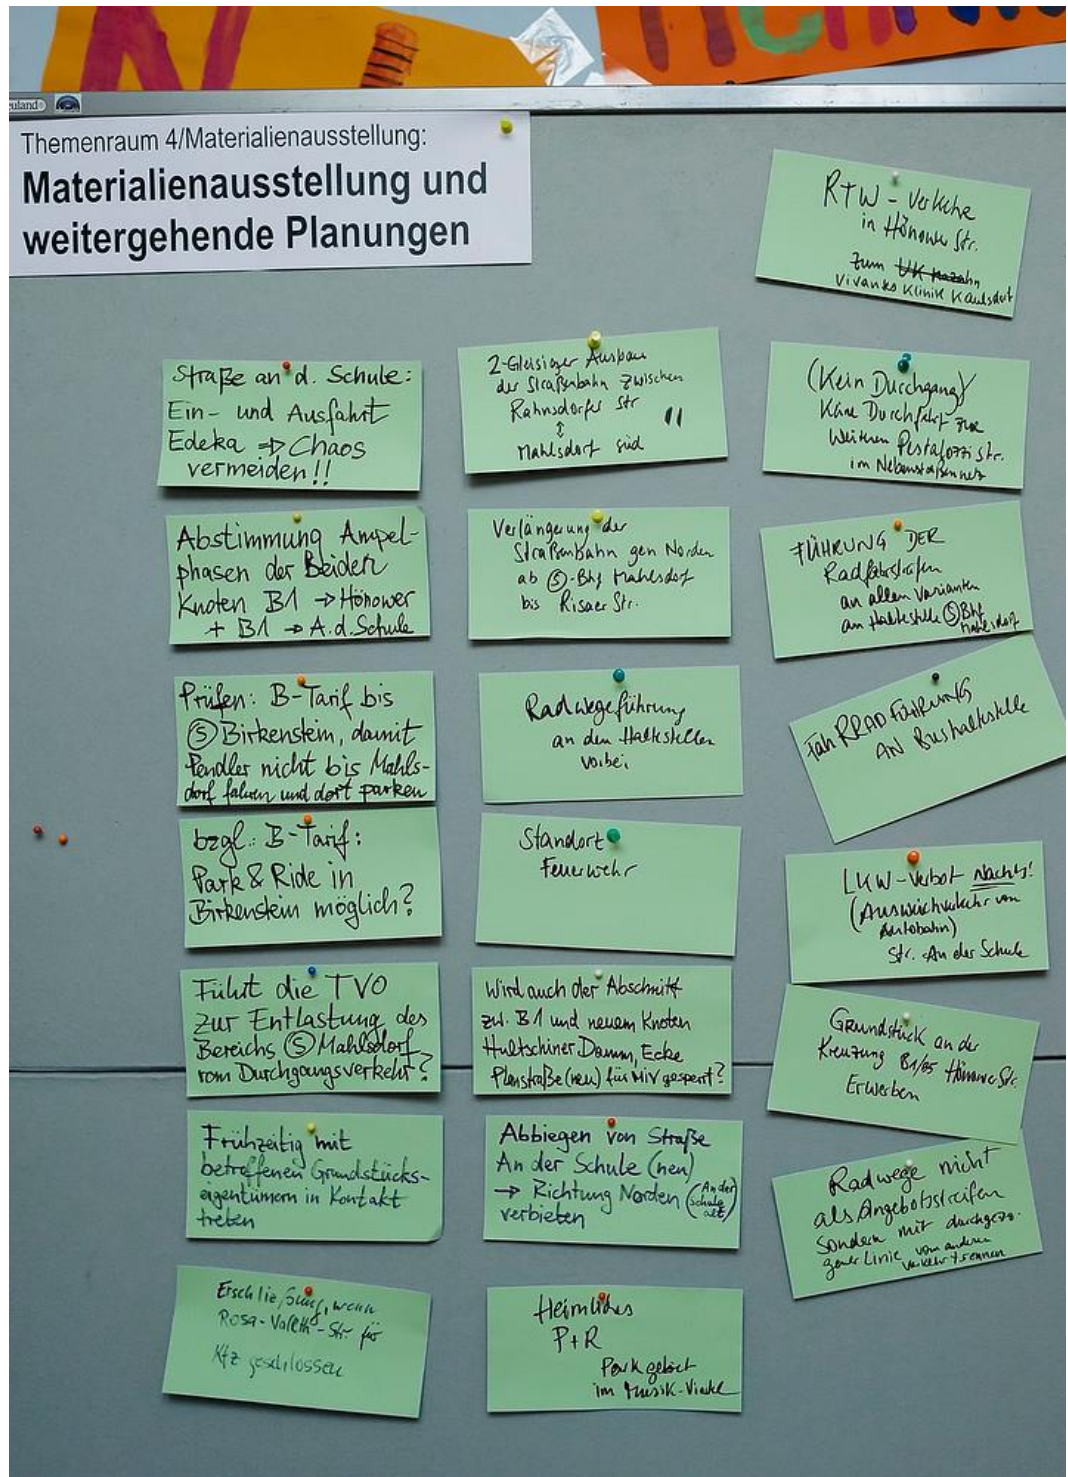 uland
Themenraum 4/Materialienausstellung:
Materialienausstellung und
weitergehende Planungen
Straße an d. Schule:
Ein- und Ausfahrt
Edeka => Chaos
vermeiden!!
Abstimmung Ampel-
phasen der Beiden
Knoten B1 → Hönower
+ B1 → A.d.Schule
Prüfen: B-Tarif bis
Ⓢ Birkenstein, damit
Pendler nicht bis Mahls-
dorf fahren und dort parken
bzgl.: B-Tarif:
Park & Ride in
Birkenstein möglich?
Führt die TVO
zur Entlastung des
Bereichs Ⓢ Mahlsdorf
vom Durchgangsverkehr?
Frühzeitig mit
betroffenen Grundstücks-
eigentümern in Kontakt
treten
Erschließung, wenn
Rosa-Valetti-Str. für
Kfz geschlossen
2-Gleisiger Ausbau
der Straßenbahn zwischen
Rahnsdorfer Str
↕ "
Mahlsdorf süd
Verlängerung der
Straßenbahn gen Norden
ab Ⓢ-Bhf Mahlsdorf
bis Risaer Str.
Radwegeführung
an den Haltestellen
vorbei
Standort
Feuerwehr
Wird auch der Abschnitt
zw. B1 und neuem Knoten
Hultschiner Damm, Ecke
Planstraße (neu) für MIV gesperrt?
Abbiegen von Straße
An der Schule (neu)
→ Richtung Norden (An der Schule alt)
verbieten
Heimliches
P+R
Parkgebiet
im Musik-Viertel
RTW - Verkehre
in Hönower Str.
zum
Vivantes Klinik Kaulsdorf
(Kein Durchgang)
Keine Durchfahrt zur
Weiteren Pestalozzi str.
im Nebenstraßennetz
FÜHRUNG DER
Radfahrstreifen
an allen Varianten
an Haltestelle Ⓢ Bhf
Mahlsdorf
FahRRADFÜHRUNG
AN Bushaltestelle
LKW-Verbot Nachts!
(Ausweichverkehr von
Autobahn)
Str. An der Schule
Grundstück an der
Kreuzung B1/B5 Hönower Str.
Erwerben
Radwege nicht
als Angebotsstreifen
sondern mit durchgezo-
gener Linie vom anderen
Verkehr trennen